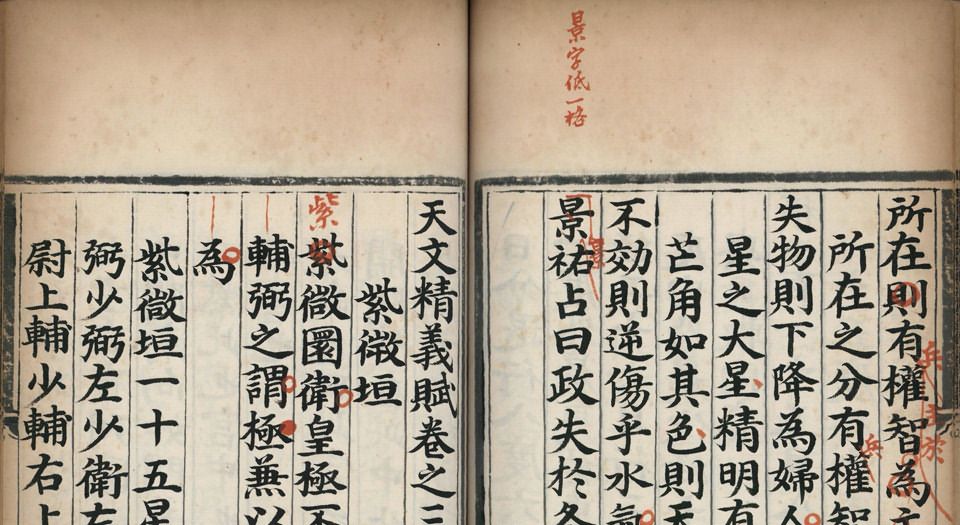 景字低一格
所在則有權智為
兵
王於
所在之分有權知
兵
失物則下降為婦人
星之大星精明有
芒角如其色則天
不効則逆傷乎水氣
景祐占曰政失於冬
景
天文精義賦卷之三
紫微垣
紫
紫微圜衛皇極不
輔弼之謂極兼以
為
紫微垣一十五星
弼少弼左少衛左
尉上輔少輔右上